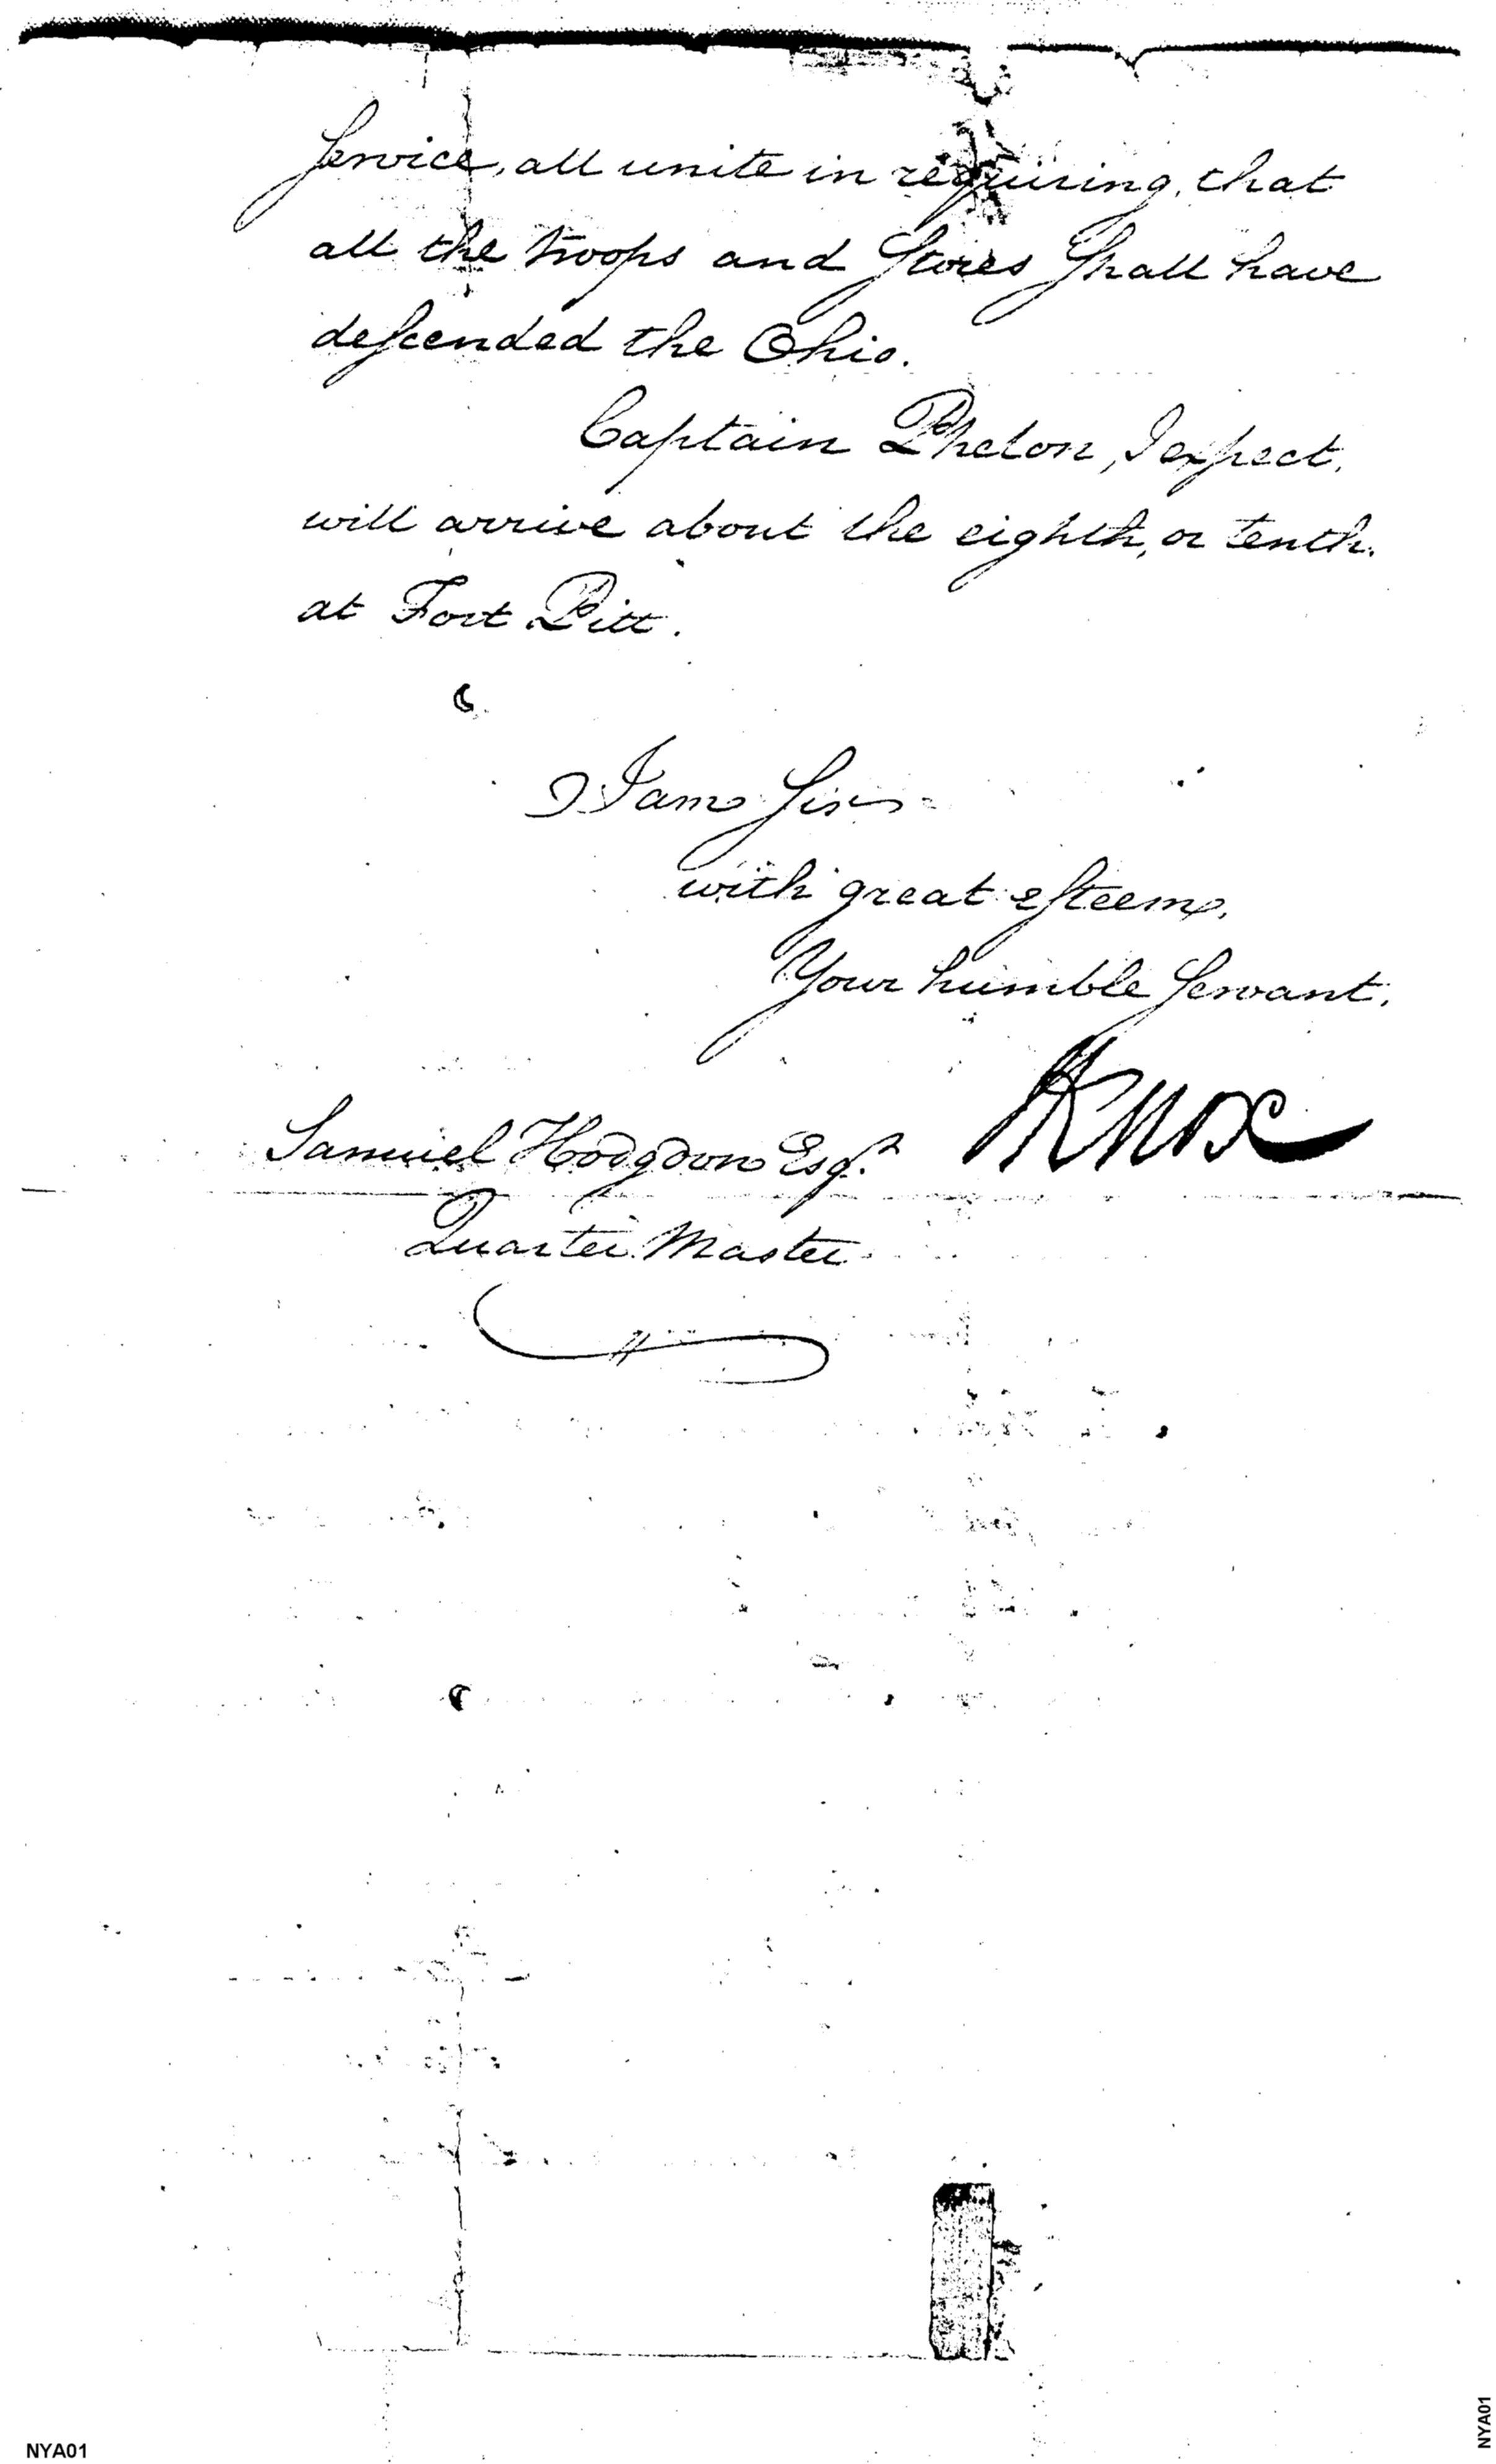 Service, all unite in requiring, that
all the troops and Stores Shall have
descended the Ohio.
Captain Phelon, I expect,
will arrive about the eighth, or tenth.
at Fort Pitt.
I am Sir
with great esteem,
Your humble Servant,
HKnox
Samuel Hodgdon Esqr.
Quarter Master
NYA01
NYA01